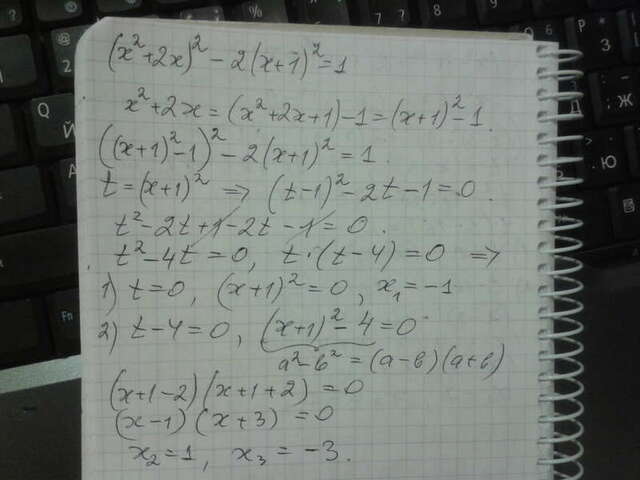 (x²+2x)² - 2(x+1)² = 1
x²+2x = (x²+2x+1)-1 = (x+1)²-1.
((x+1)²-1)² - 2(x+1)² = 1.
t = (x+1)² ⇒ (t-1)² - 2t - 1 = 0.
t² - 2t + 1 - 2t - 1 = 0.
t² - 4t = 0, t·(t-4) = 0 ⇒
1) t = 0, (x+1)² = 0, x₁ = -1
2) t - 4 = 0, (x+1)² - 4 = 0
a² - в² = (a-в)(a+в)
(x+1-2)(x+1+2) = 0
(x-1)(x+3) = 0
x₂ = 1, x₃ = -3.
?
Q
Й
A
Fn
?
8
P
З
Д
Ж
.
Ю